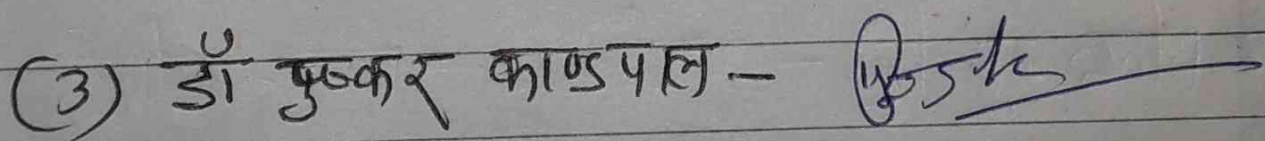 (3) डॉ पुष्कर काण्डपाल –